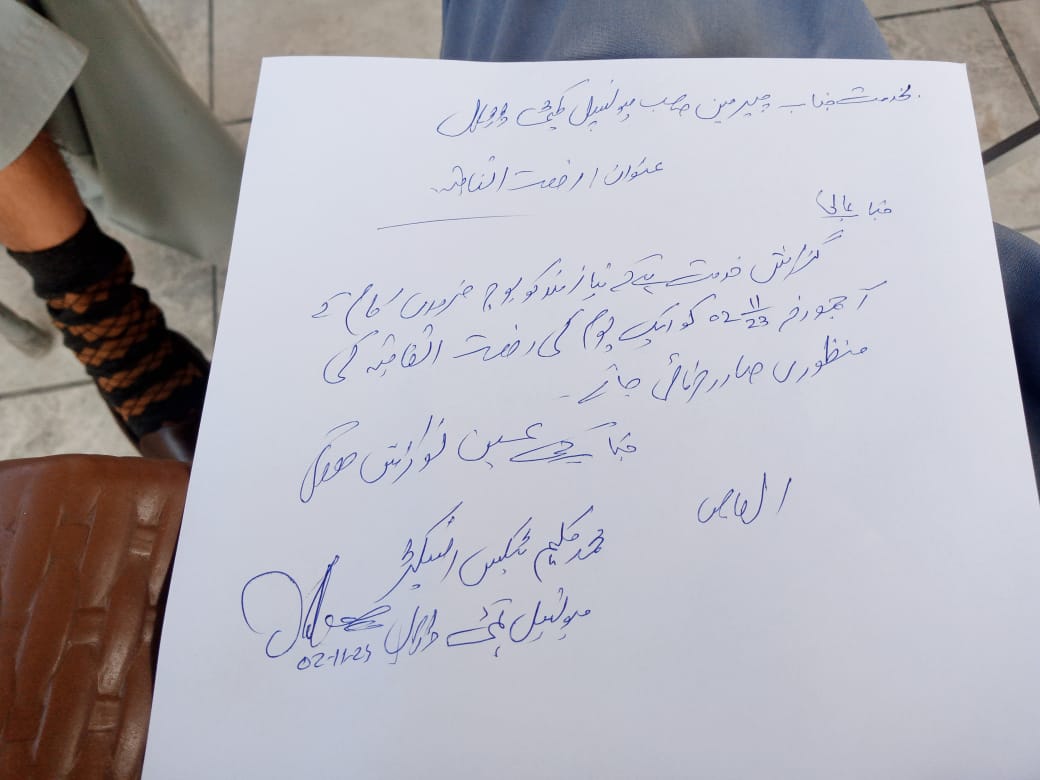 بخدمت جناب چیرمین صاحب میونسپل کمیٹی
عنوان / رخصت اتفاقیہ
جناب عالی
گزارش خدمت ہے کہ نیاز مند کو بوجہ ضروری کام کے
آج مورخہ 02 11/23 کو ایک یوم کی رخصت اتفاقیہ کی
منظوری صادر فرمائی جائے۔
جناب کی عین نوازش ہوگی
العارض
محمد حکیم ٹیکس انسپکٹر
میونسپل کمیٹی
02-11-23